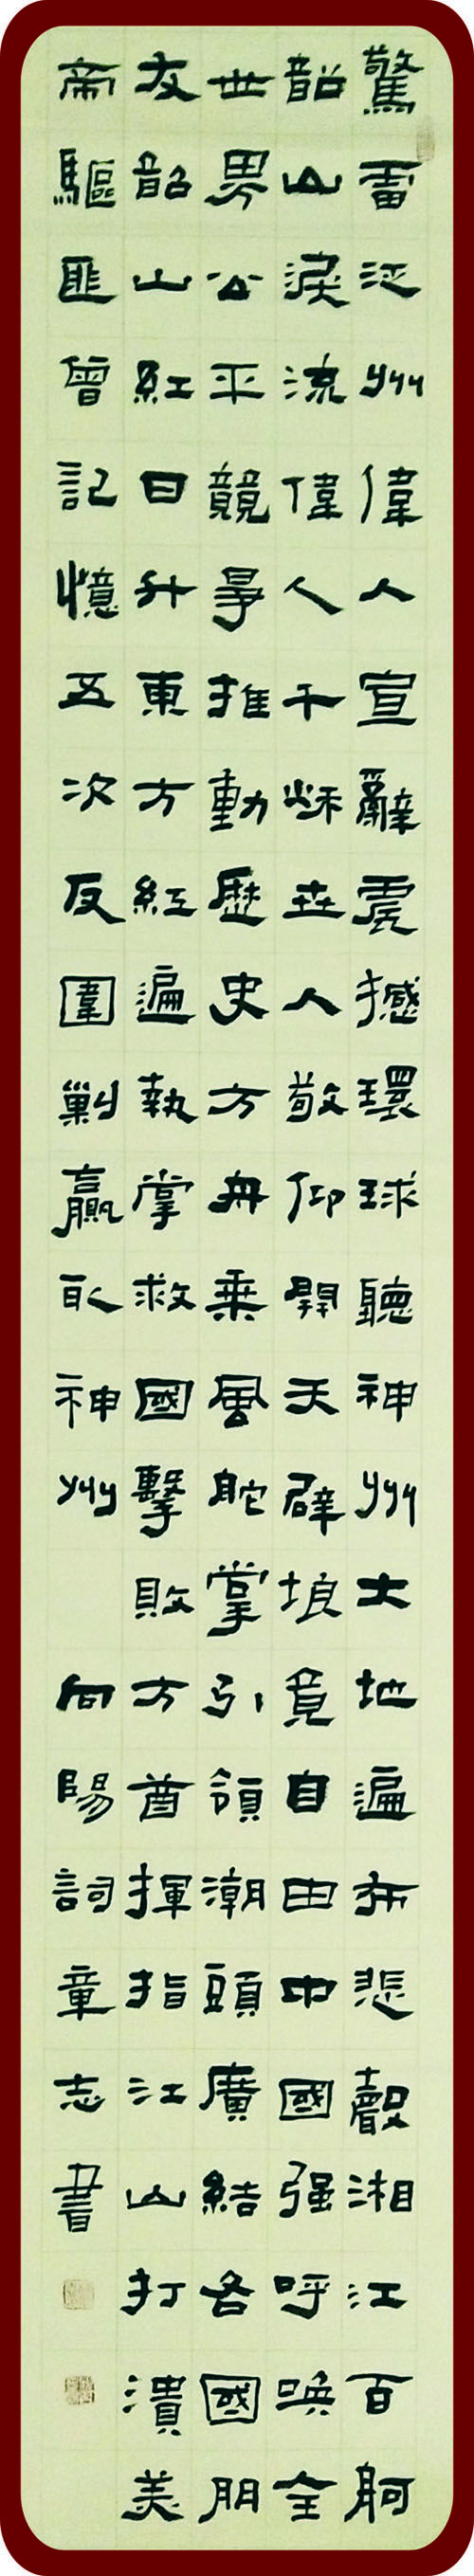 驚雷州偉人宣辭震撼環球聽神州大地遍布悲聲湘江百舸
韶山淚流偉人千秌世人敬仰開天辟垠竟自由中國强呼唤全
世界公平競爭推動歷史方舟乘風舵掌引領潮頭廣結各國朋
友韶山紅日升東方紅遍執掌救國擊敗方酋揮指江山打潰美
帝驅匪曾記憶五次反圍剿贏取神州 向陽詞章志書